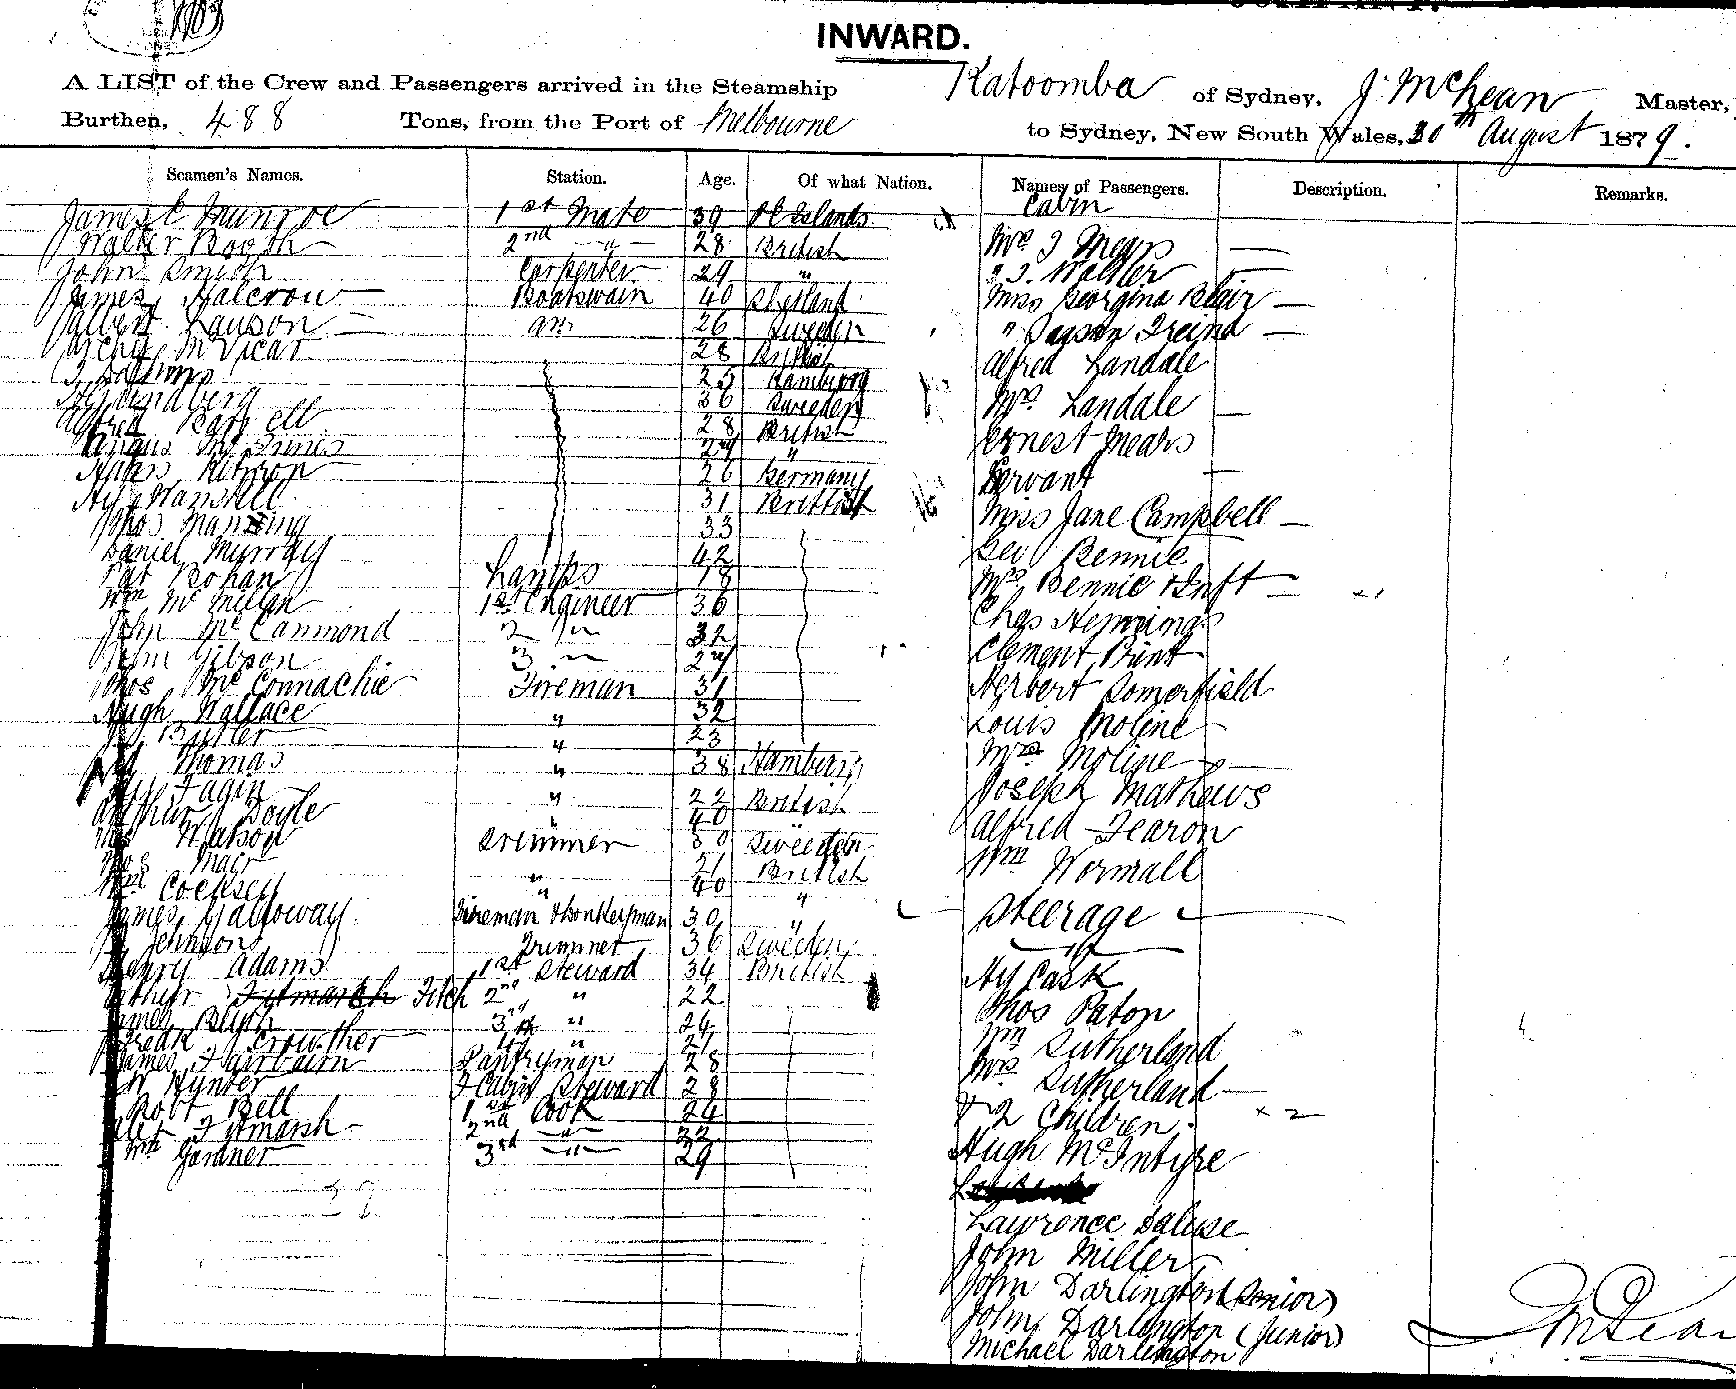 INWARD.
A LIST of the Crew and Passengers arrived in the Steamship Katoomba of Sydney, J. McLean Master,
Burthen, 488 Tons, from the Port of Melbourne to Sydney, New South Wales, 30th August 1879.
Seamen's Names. Station. Age. Of what Nation. Names of Passengers. Description. Remarks.
Cabin
James C Munroe 1st Mate 39 Islands
Walter Boogh 2nd " 28 British Mrs J Mears
John Smith Carpenter 29 " " J. Walker
James Halcrow Boatswain 40 Shetland Miss Georgina Blair
Albert Lawson AB 26 Sweden " Freind
Archy McVicar 28 British Alfred Landale
25 Hamburg
Hy Lindberg 36 Sweden Mrs Landale
Alfred 28 British Ernest Mears
Angus McInnis 27 "
26 Germany Servant
Hy Manskill 31 British
Thos Manning 33 Miss Jane Campbell
Daniel Murray 42 Geo Bennie
Pat Bohan Lamps 18 Mrs Bennie & Inft
Wm McMillan 1st Engineer 36
John McCammond 2 " 32 Chas Hemmings
John Gibson 3 " 27 Clement Bunt
Thos McConnachie Fireman 31 Herbert Somerfield
Hugh Wallace " 32 Louis Moline
Butler " 23
Thomas " 38 Hamburg Mrs Moline
Fagin " 22 British Joseph Mathews
Arthur Doyle " 40
Watson Trimmer 30 Sweeden Alfred Fearon
Thos Mair " 21 British Wm Wormall
Wm Cocksey " 40 "
James Galloway Fireman & Donkeyman 30 " Steerage
Johnson Trimmer 36 Sweeden
Henry Adams 1st Steward 34 British Hy Cask
Arthur Fytmarsh Fitch 2nd " 22 Thos Paton
James Blyth 3rd " 24 Wm Sutherland
Crowther 4th " 21
James Fairbairn Pantryman 28 Mrs Sutherland
W Hynter F Cabin Steward 28
Robt Bell 1st Cook 24 & 2 Children. x 2
Fytmarsh 2nd " 33
Wm Gardner 3rd " 29 Hugh McIntyre
Lawrence Daluse
John Miller
John Darlington (Senior)
John Darlington (Junior)
Michael Darlington
J McLean